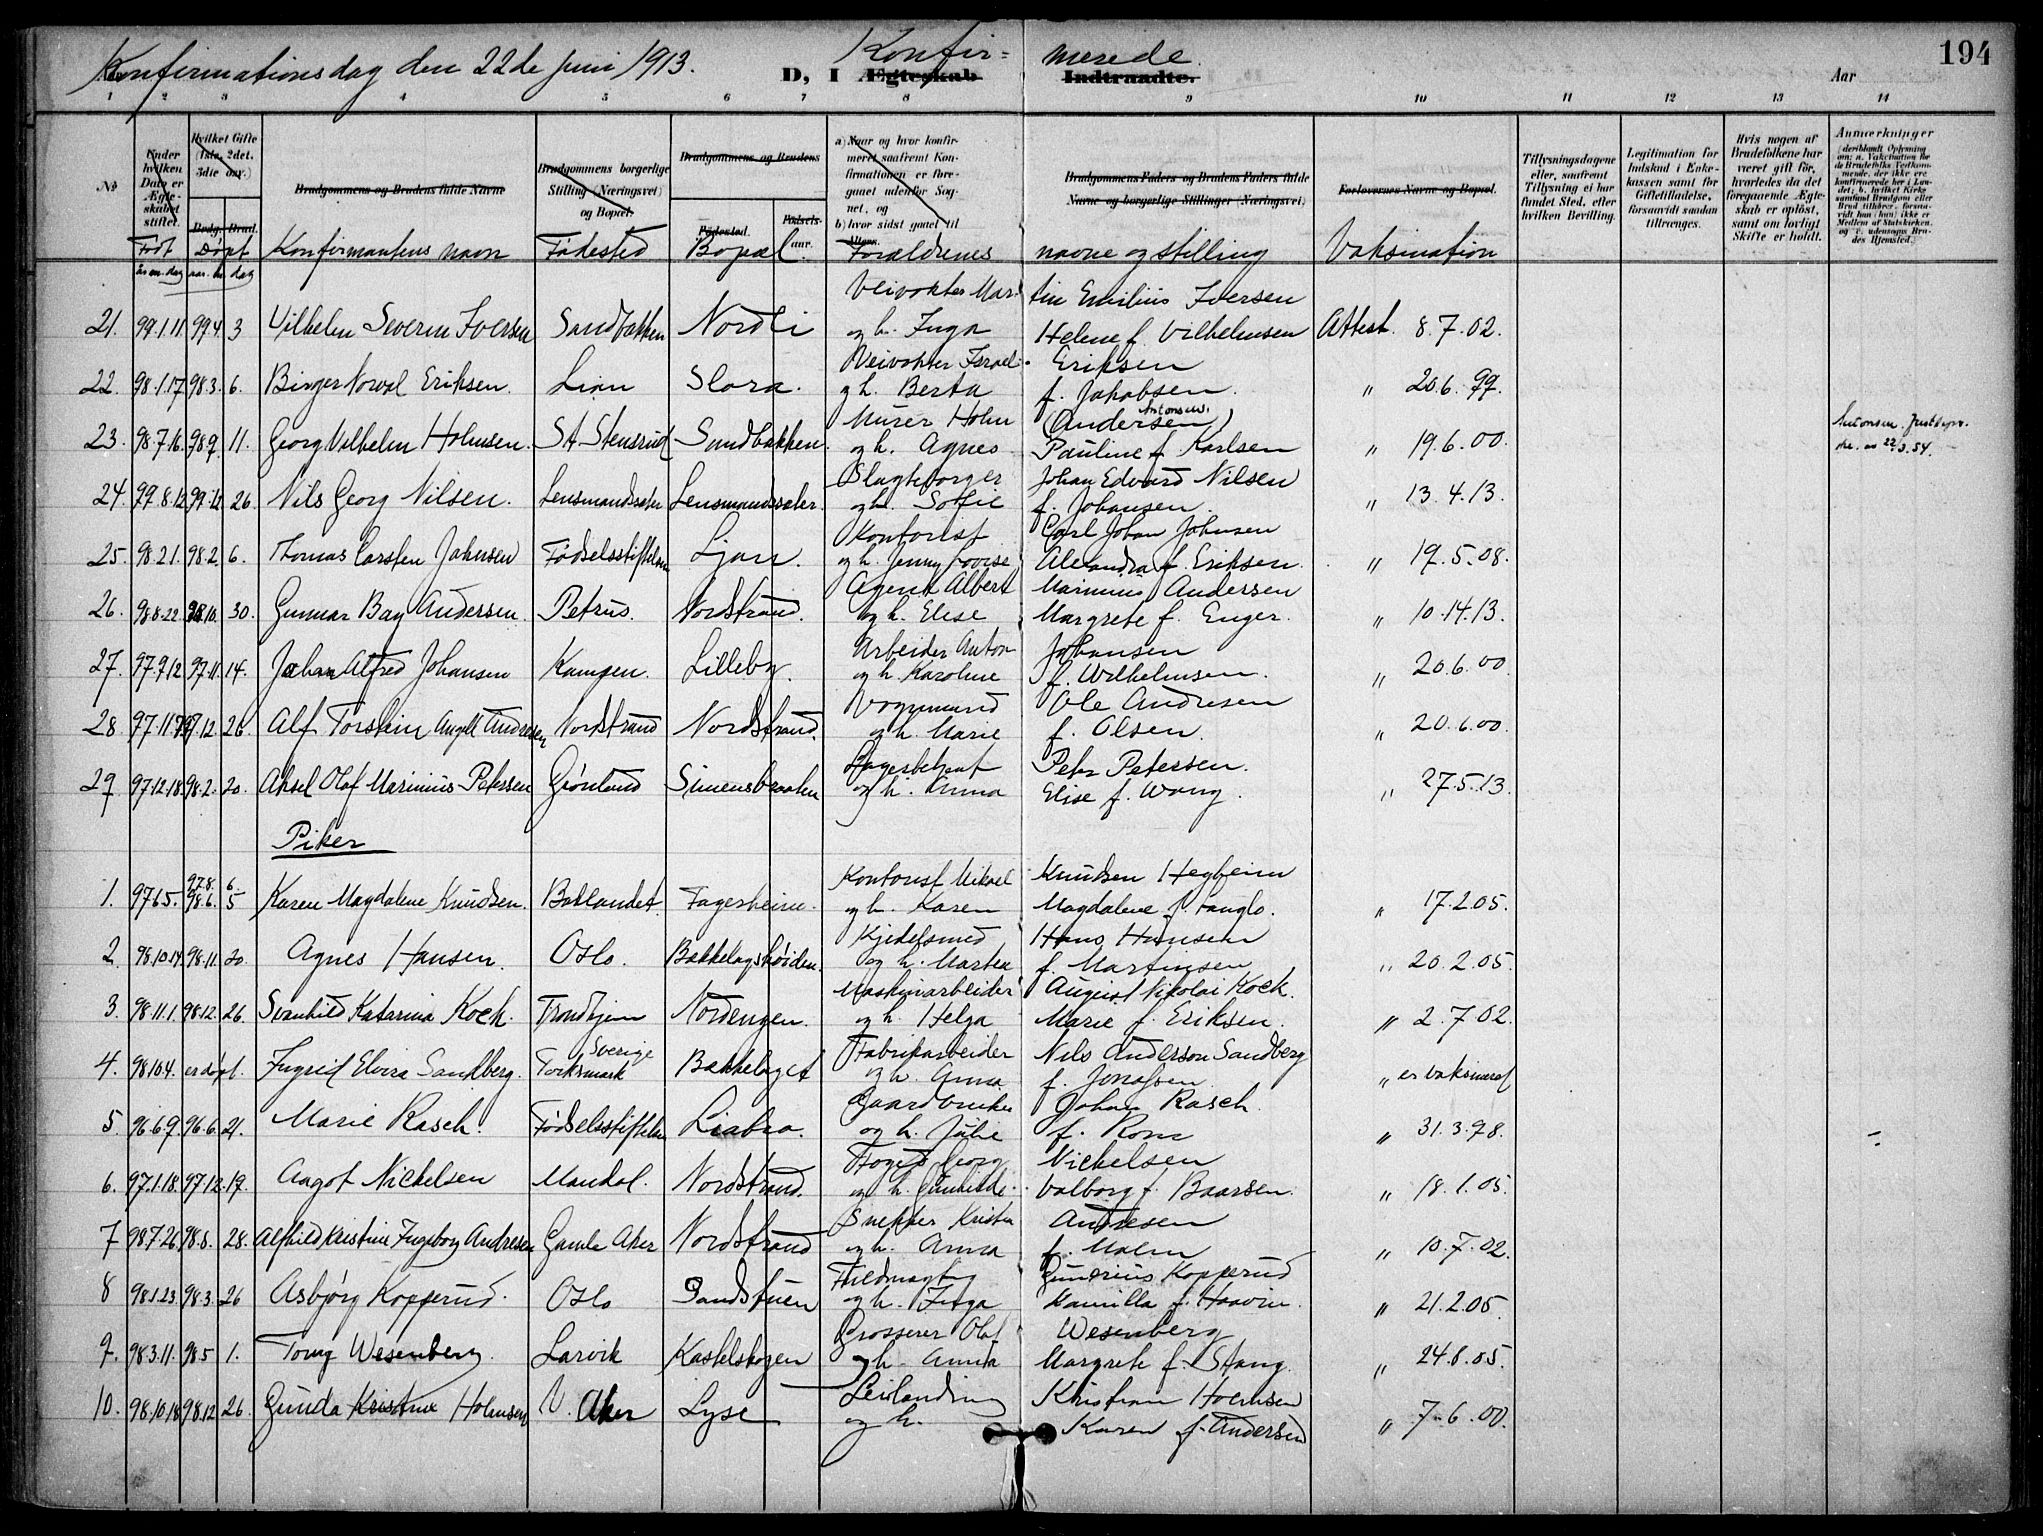 Konfirmationsdag den 22de Juni 1913.
Konfir= merede.
D, I Ægteskab Indtraadte. Aar 194
1 2 3 4 5 6 7 8 9 10 11 12 13 14
No
Under hvilken Dato er Ægteskabet stiftet.
Hvilket Gifte (1ste, 2det, 3die osv.)
Brudg. Brud.
Brudgommens og Brudens fulde Navne
Brudgommens borgerlige Stilling (Næringsvei) og Bopæl.
Brudgommens og Brudens
Fødested. Fødselsaar.
a) Naar og hvor konfirmeret, saafremt Konfirmationen er foregaaet udenfor Sognet, og b) hvor sidst gaaet til Alters.
Brudgommens Faders og Brudens Faders fulde Navne og borgerlige Stillinger (Næringsvei)
Forlovernes Navne og Bopæl.
Tillysningsdagene eller, saafremt Tillysning ei har fundet Sted, efter hvilken Bevilling.
Legitimation for Indskud i Enkekassen samt for Giftetilladelse, forsaavidt saadan tiltrænges.
Hvis nogen af Brudefolkene har været gift før, hvorledes da det foregaaende Ægteskab er opløst, samt om lovligt Skifte er holdt.
Anmerkninger
Født Døpt Konfirmantens navn Fødested Bopæl. Forældrenes navne og stilling Vaksination
Veivokter Martin Emilius Iversen
21. 99.1.11 99.4 3 Vilhelm Severin Iversen Sandbakken Nordli og h. Inga Helene f. Vilhelmsen Attest. 8.7.02.
Veivokter Israel Eriksen
22. 98.1.17 98.3. 6. Birger Norval Eriksen. Lian Slora. og h. Berta f. Jakobsen. " 20.6.99.
Murer Holm (Andersen) Antonsen.
23. 98.7.16. 98.9. 11. Georg Vilhelm Holmsen. St. Stensrud Sandbakken. og h. Agnes Pauline f. Karlsen " 19.6.00. Antonsen
Slagteborger Johan Edvard Nilsen
24. 99.8.12 99.12 26. Nils Georg Nilsen. Lensmandssæter Lensmandssæter. og h. Sofie f. Johansen. " 13.4.13.
Kontorist Carl Johan Johnsen
25. 98.2.1. 98.2. 6. Thomas Carsten Johnsen Fødselsstiftelsen Ljan. og h. Jenny Lovise Alexandra f. Eriksen. " 19.5.08.
Agent Albert Marinius Andersen
26. 98.8.22. 98.10. 30. Gunnar Bay Andersen. Petrus. Nordstrand. og h. Elise Margrete f. Enger. " 10.14.13.
Arbeider Anton Johansen
27. 97.9.12 97.11. 14. Johan Alfred Johansen Kampen. Lilleby. og h. Karoline f. Wilhelmsen. " 20.6.00
Vognmand Ole Andresen
28 97.11. 97.12 26. Alf Torstein Angell Andresen Nordstrand Nordstrand. og h. Marie f. Olsen. " 20.6.00.
Lagerbetjent Peter Petersen.
29 97.12.18 98.2. 20. Aksel Olaf Marinius Petersen Grønland Simensbraaten og h. Anna Elise f. Wang. " 27.5.13.
Piker
Kontorist Mikael Knudsen Hegheim
1. 97.6.5. 97.8. 6 98.6. 5 Karen Magdalene Knudsen. Baklandet. Fagerheim. og h. Karen Magdalene f. Fanglo. " 17.2.05.
Kjedelsmed Hans Hansen
2. 98.10.14 98.11. 20. Agnes Hansen. Oslo. Bækkelagshøiden. og h. Martea f. Martinsen " 20.2.05.
Maskinarbeider August Nikolai Kock.
3. 98.11.1. 98.12. 26. Svanhild Katarina Kock. Trondhjem Nordengen. og h. Helga Marie f. Eriksen. " 2.7.02.
Fabrikarbeider Nils Anderson Sandberg
4. 98.10.4. er døpt. Ingrid Elvira Sandberg. Sverige Torksmark Bækkelaget og h. Anna f. Jonassen. " er vaksineret
Gaardbruker Johan Rasch.
5. 96.6.9. 96.6. 21. Marie Rasch. Fødselsstiftelsen Liabro. og h. Julie f. Rom " 31.3.98.
Foged Georg Nickelsen
6. 97.1.18. 97.12. 19. Aagot Nickelsen Mandal. Nordstrand. og h. Gunhilde Valborg f. Baarsen. " 18.1.05.
Snekker Kristen Andresen
7 98.7.26. 98.8. 28. Alfhild Kristine Ingeborg Andresen Gamle Aker Nordstrand og h. Anna f. Malm " 10.7.02.
Fuldmægtig Gunerius Kopperud
8 98.1.23. 98.3. 26 Asbjørg Kopperud. Oslo Sandstuen og h. Inga Kamilla f. Haavin. " 21.2.05.
Grosserer Olaf Wesenberg
9. 98.3.11. 98.5 1. Tony Wesenberg. Larvik Kastelskogen og h. Anna Margrete f. Stang. " 24.8.05.
Leilending Kristian Holmsen
10. 98.10.18 98.12 26. Gunda Kristine Holmsen V. Aker Lyse og h. Karen f. Andersen " 7.6.00.